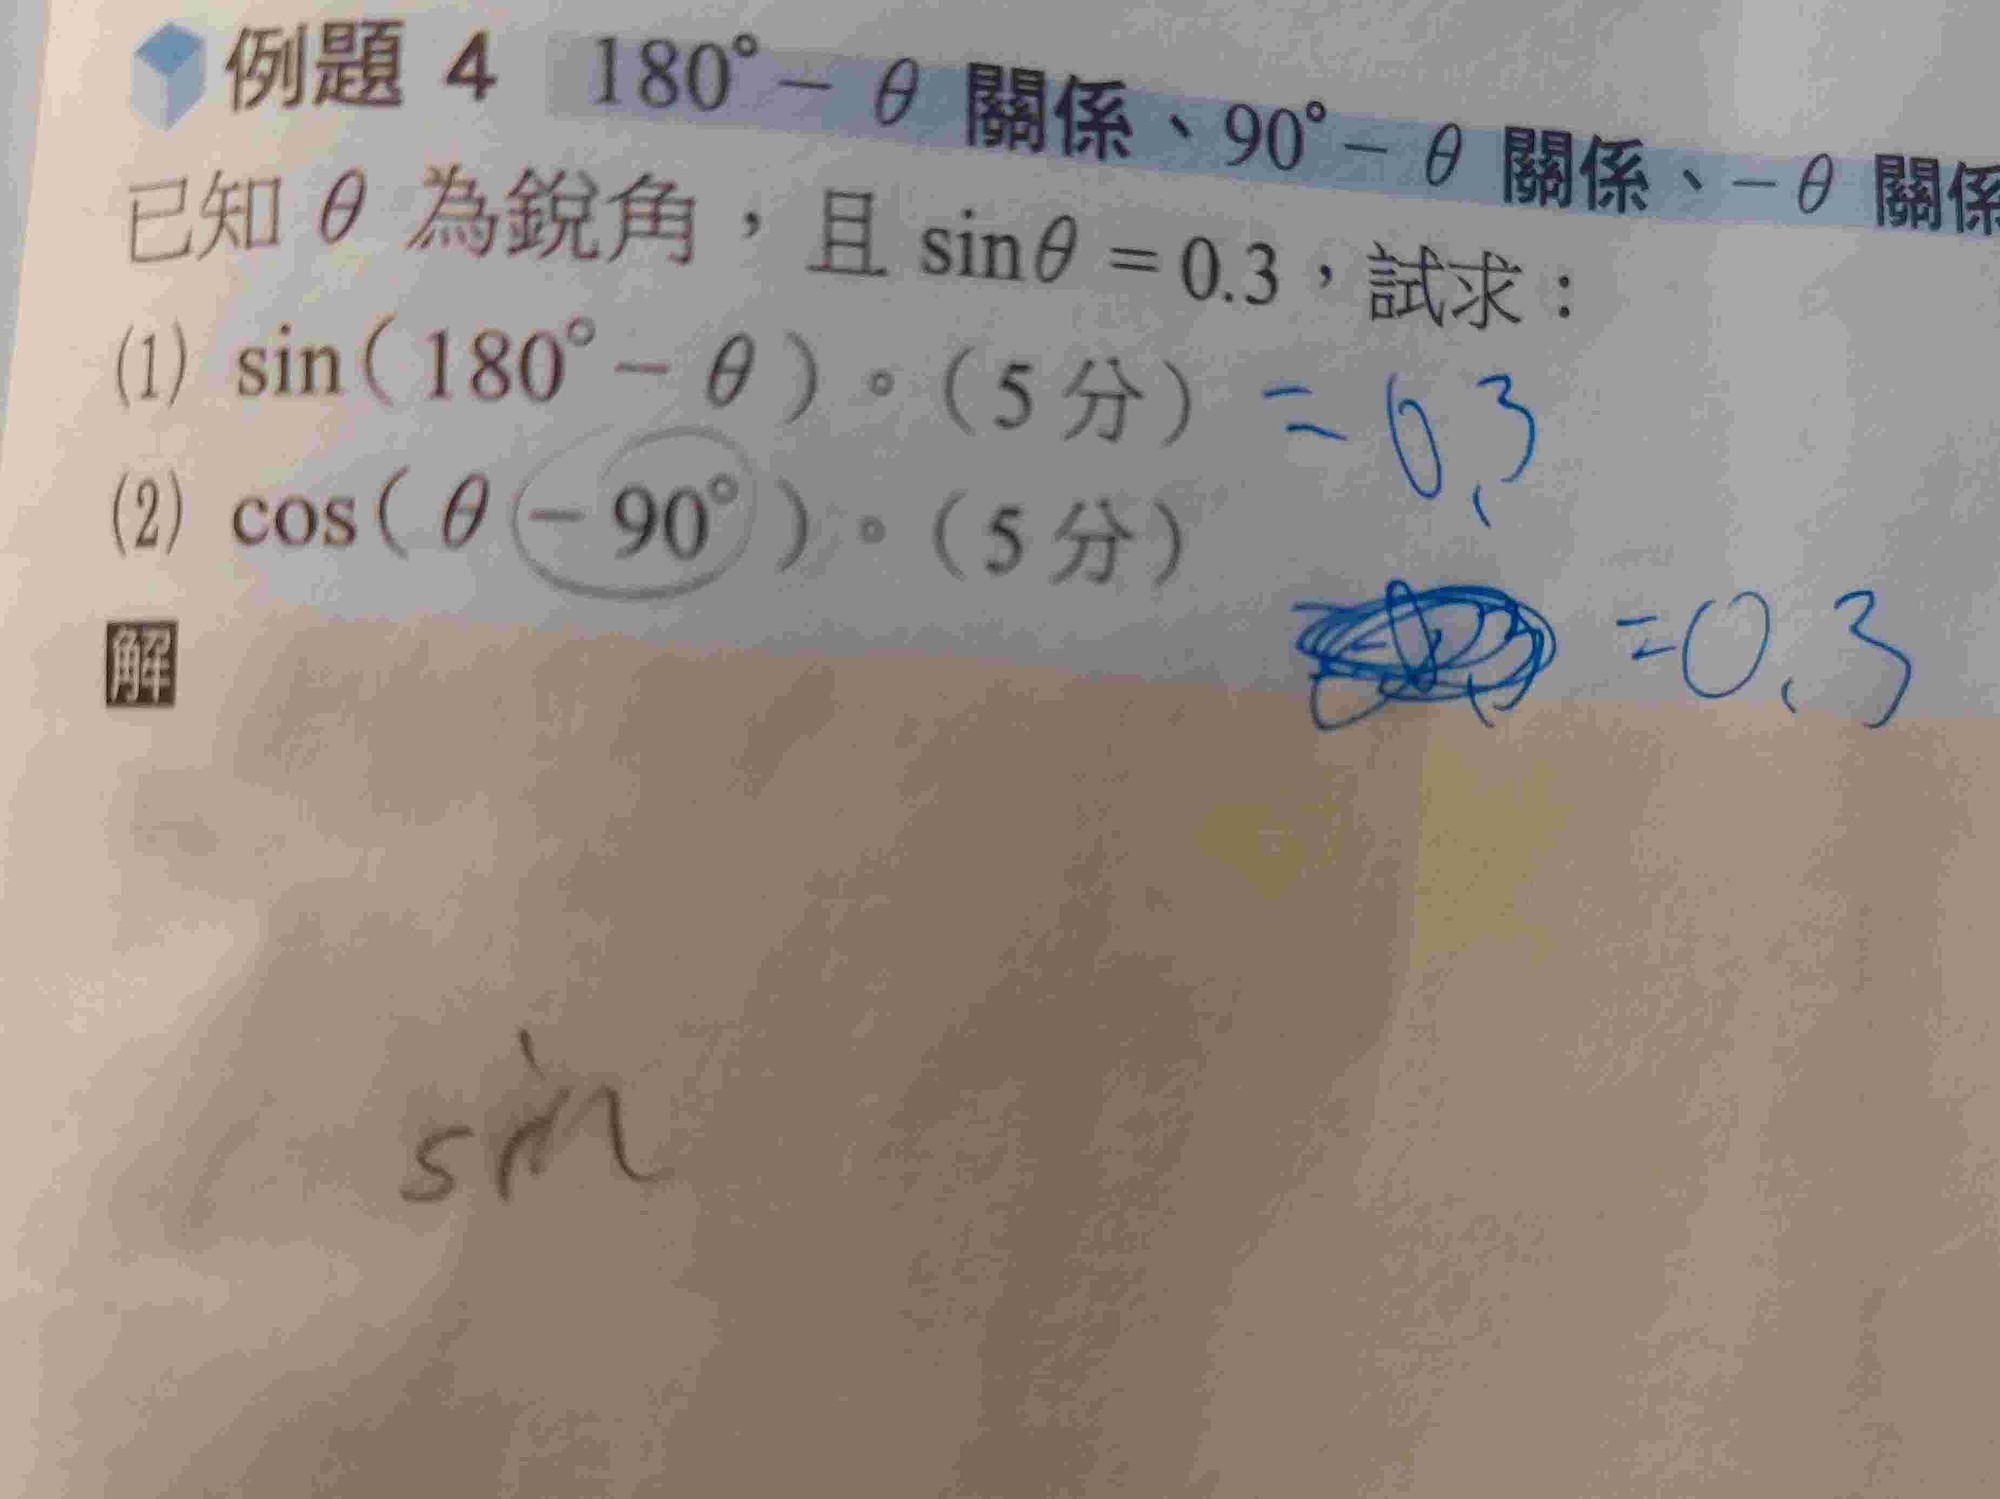 例題 4 180° − θ 關係、90° − θ 關係、− θ 關係
已知 θ 為銳角，且 sinθ = 0.3，試求：
(1) sin( 180° − θ )。(5 分) = 0.3
(2) cos( θ − 90° )。(5 分)
= 0.3
解
sin